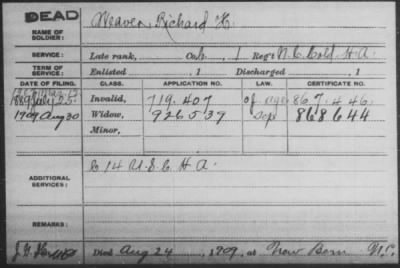 DEAD
NAME OF SOLDIER: Weaver, Richard H.
SERVICE: Late rank, Co. 1 Reg't N.C. Cold. H.A.
TERM OF SERVICE: Enlisted , 1 Discharged , 1
DATE OF FILING. CLASS. APPLICATION NO. LAW. CERTIFICATE NO.
1889 July 25 Invalid, 719.407 867.446.
1909 Aug 30 Widow, 926539 868644
Minor,
ADDITIONAL SERVICES: C 14 U.S.C.H.A.
REMARKS:
Died Aug 24, 1909, at New Bern N.C.